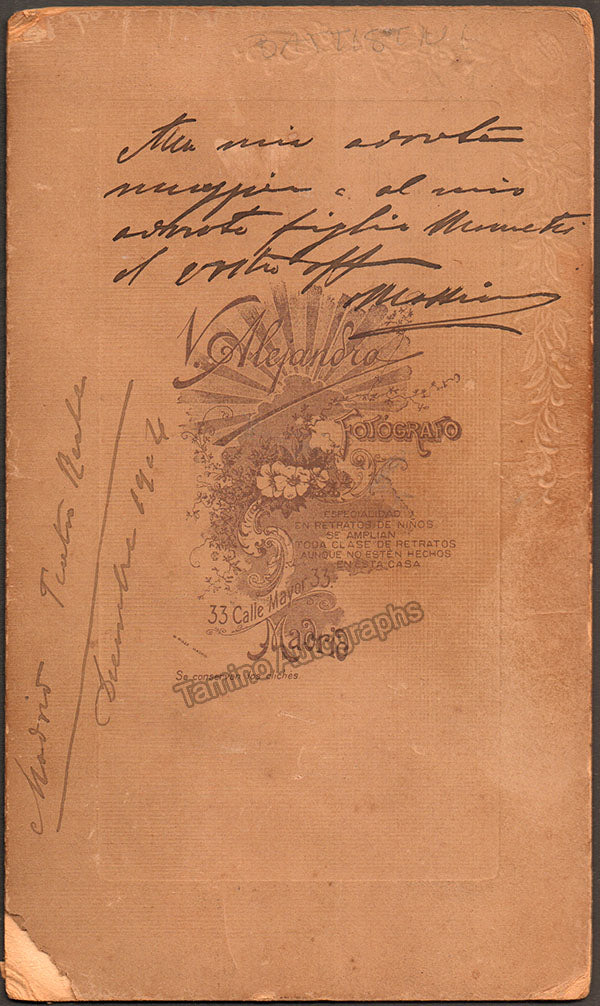 BATTISTINI
Alla mia adorata
e al mio
adorato figlio
il vostro aff
Mattia
V. Alejandro
FOTÓGRAFO
ESPECIALIDAD
EN RETRATOS DE NIÑOS
SE AMPLIAN
TODA CLASE DE RETRATOS
AUNQUE NO ESTÉN HECHOS
EN ESTA CASA
33 Calle Mayor 33
Madrid
Se conservan los clichés
Tamino Autographs
Madrid Teatro Reale
Dicembre 1904